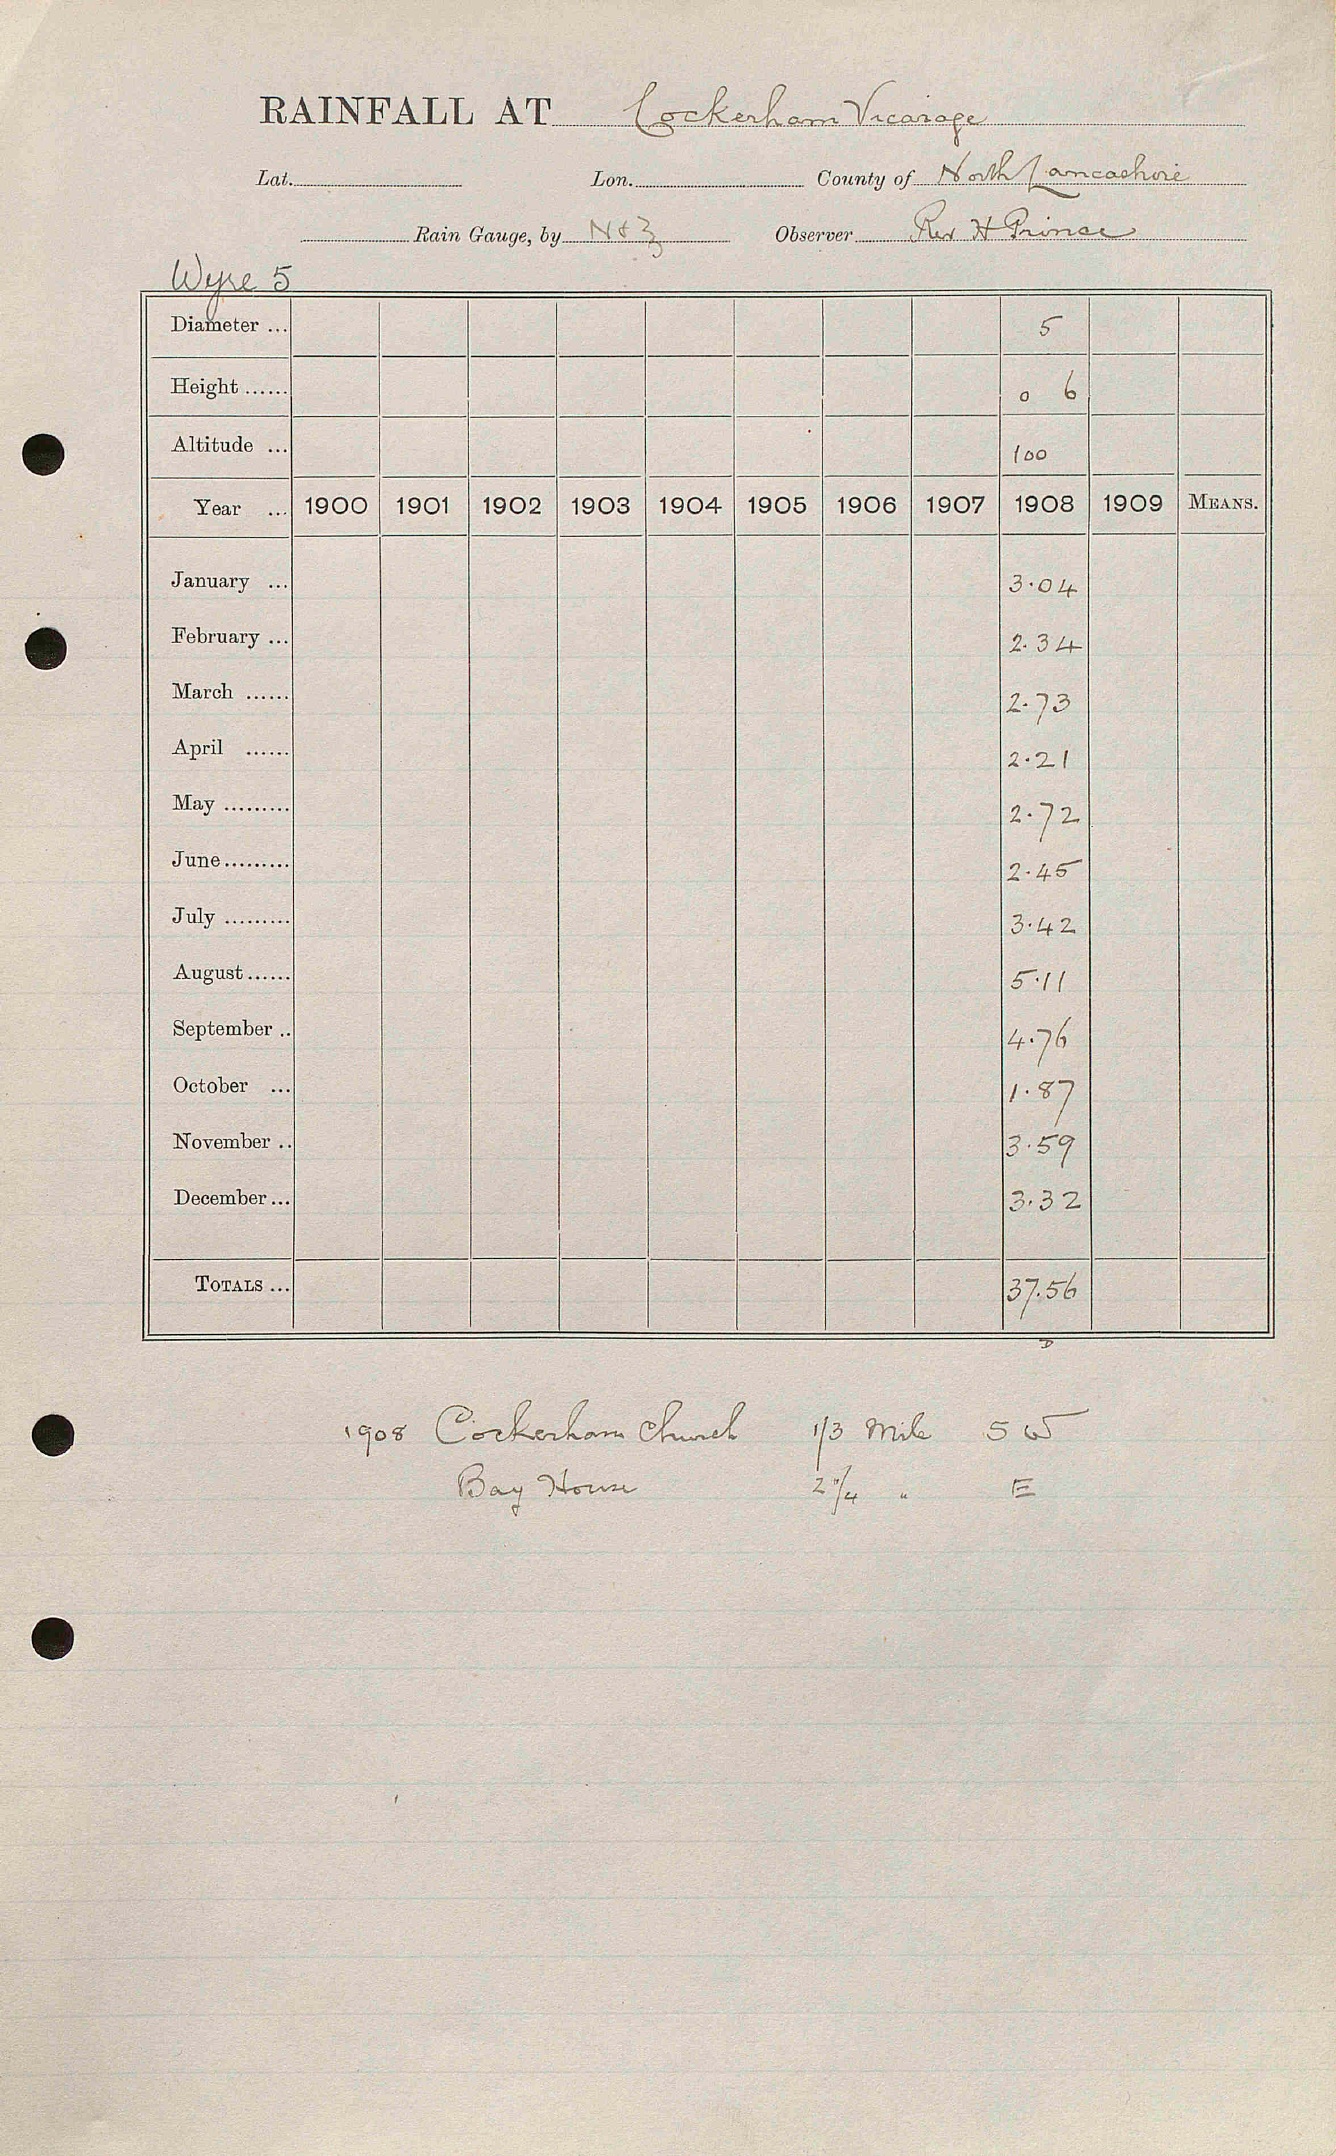 RAINFALL AT Cockerham Vicarage
Lat. Lon. County of North Lancashire
Rain Gauge, by N & Z Observer Rev H Prince
Wyre 5
Diameter ... 5
Height ...... 0 6
Altitude ... 100
Year ... 1900 1901 1902 1903 1904 1905 1906 1907 1908 1909 MEANS.
January ... 3.04
February ... 2.34
March ...... 2.73
April ...... 2.21
May ......... 2.72
June ......... 2.45
July ......... 3.42
August ...... 5.11
September .. 4.76
October ... 1.87
November .. 3.59
December ... 3.32
TOTALS ... 37.56
D
1908 Cockerham Church 1/3 Mile SW
Bay House 2 1/4 " E